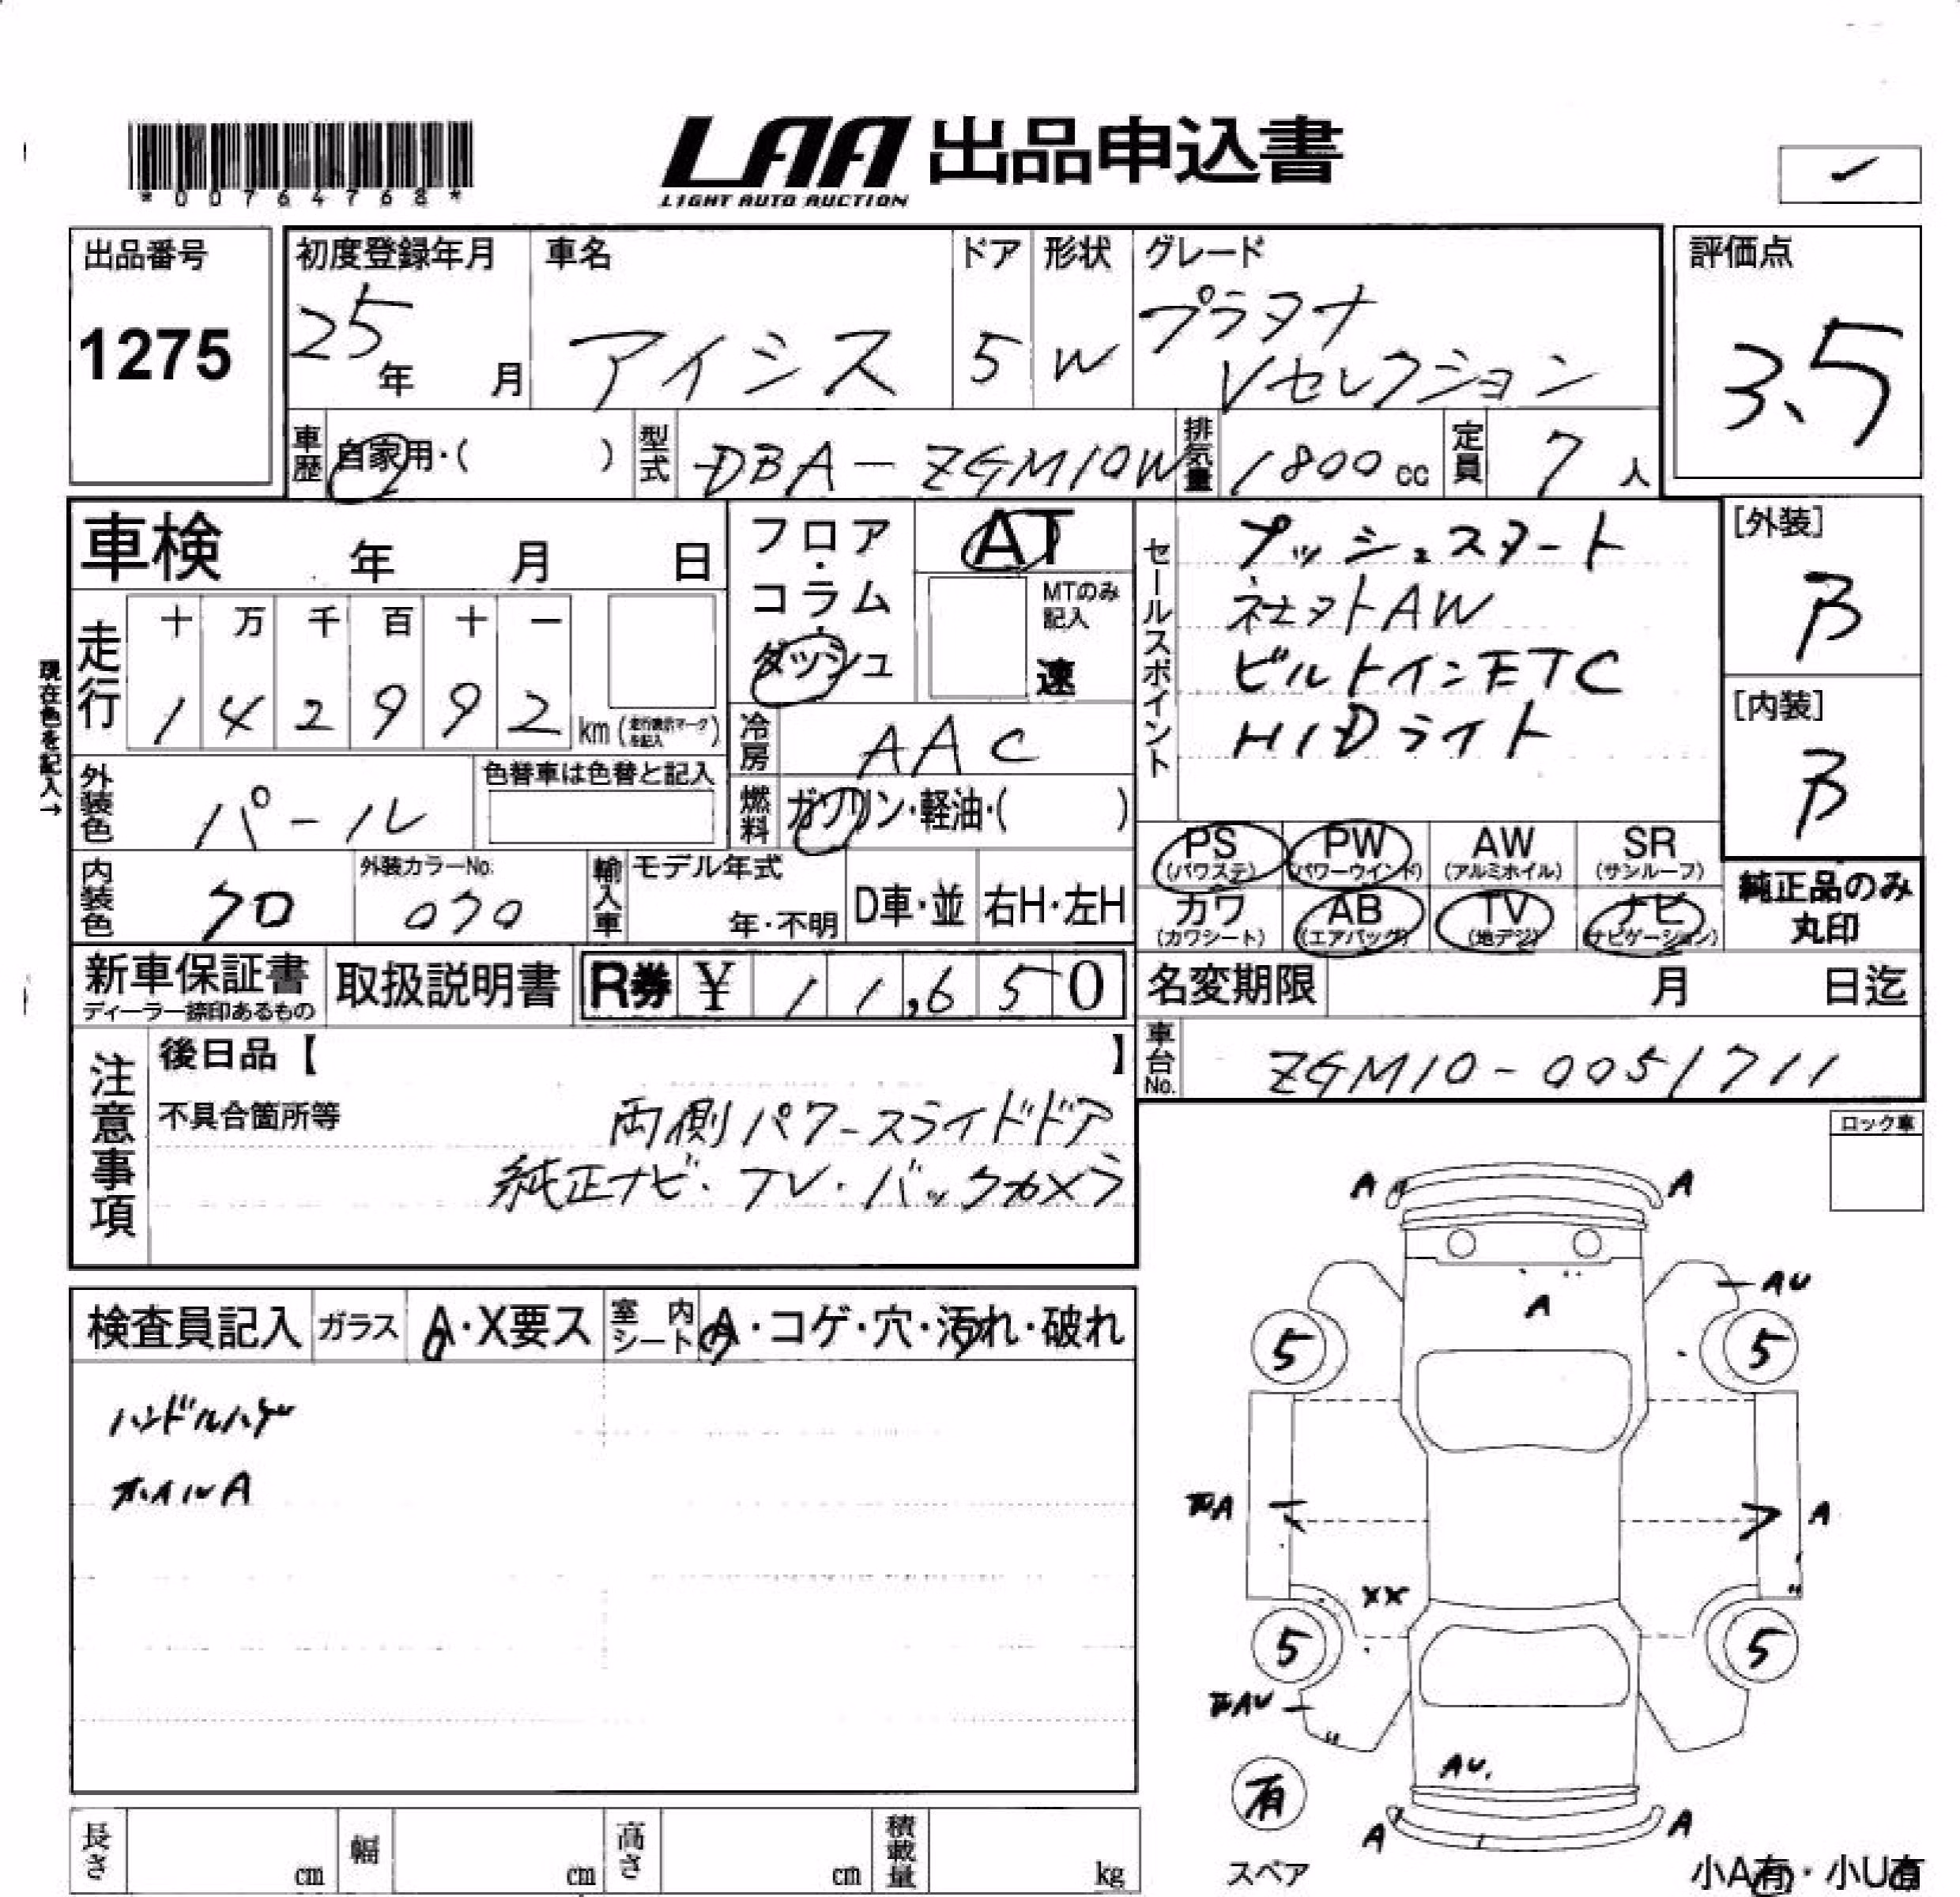 *00764768*
LAA 出品申込書
LIGHT AUTO AUCTION
出品番号
1275
初度登録年月
25年 月
車名
アイシス
ドア
5
形状
W
グレード
プラタナ
Vセレクション
評価点
3.5
車歴 自家用・( )
型式 DBA-ZGM10W
排気量 1800cc
定員 7人
車検 年 月 日
フロア・コラム・ダッシュ
AT
MTのみ記入
速
セールスポイント
プッシュスタート
社外AW
ビルトインETC
HIDライト
[外装]
B
[内装]
B
現在色を記入→
走行
十 万 千 百 十 一
1 4 2 9 9 2 km (走行表示マークを記入)
冷房 AAC
外装色 パール
色替車は色替と記入
燃料 ガソリン・軽油・( )
内装色 クロ
外装カラーNo.
070
輸入車
モデル年式
年・不明
D車・並
右H・左H
PS (パワステ)
PW (パワーウインド)
AW (アルミホイル)
SR (サンルーフ)
カワ (カワシート)
AB (エアバッグ)
TV (地デジ)
ナビ (ナビゲーション)
純正品のみ
丸印
新車保証書
ディーラー捺印あるもの
取扱説明書
R券 ¥ 11,650
名変期限 月 日迄
車台No. ZGM10-0051711
注意事項
後日品【 】
不具合箇所等
両側パワースライドドア
純正ナビ・TV・バックカメラ
ロック車
検査員記入
ガラス A・X要ス
室内シート A・コゲ・穴・汚れ・破れ
ハンドルハゲ
ホイルA
A A
AU
A
5 5
A A
XX
5 5
AU
AU.
有
スペア
A A
小A有・小U有
長さ cm
幅 cm
高さ cm
積載量 kg